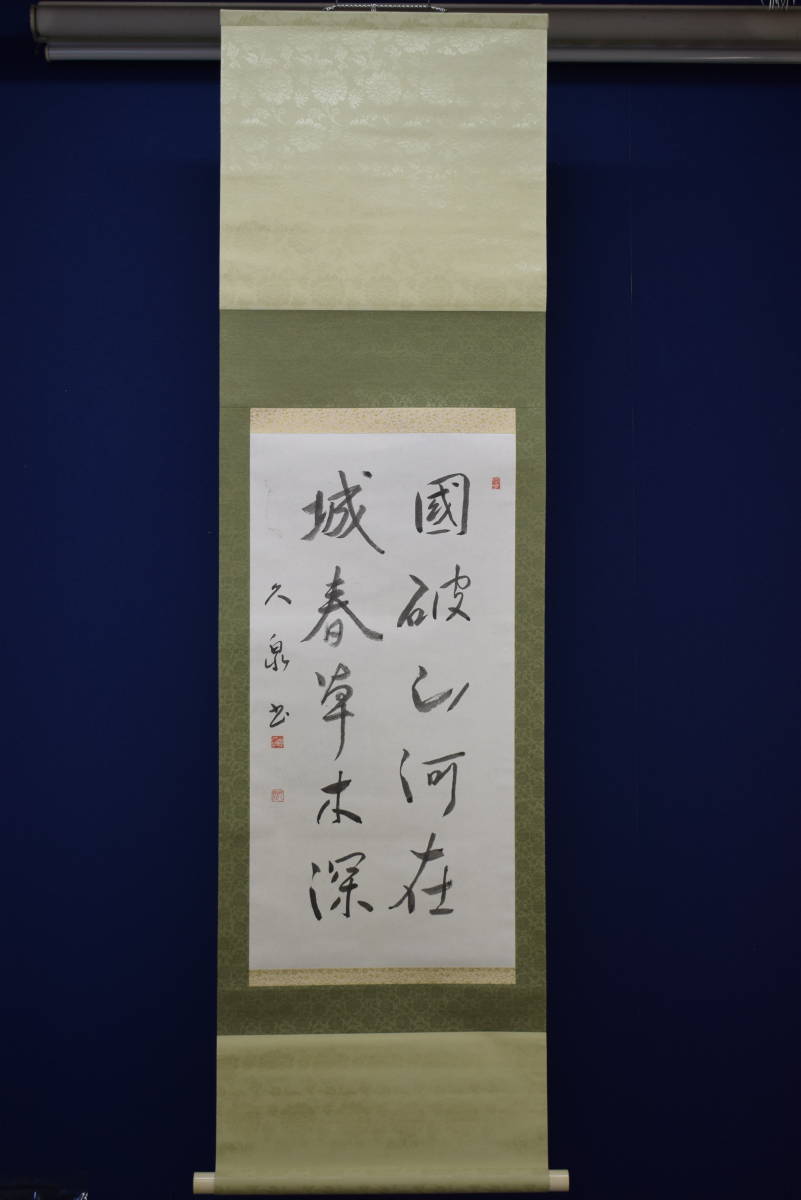 國破山河在
城春草木深
久泉書